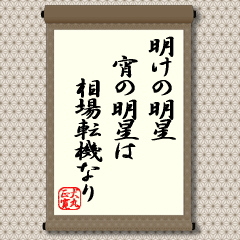 明けの明星
宵の明星は
相場転機なり